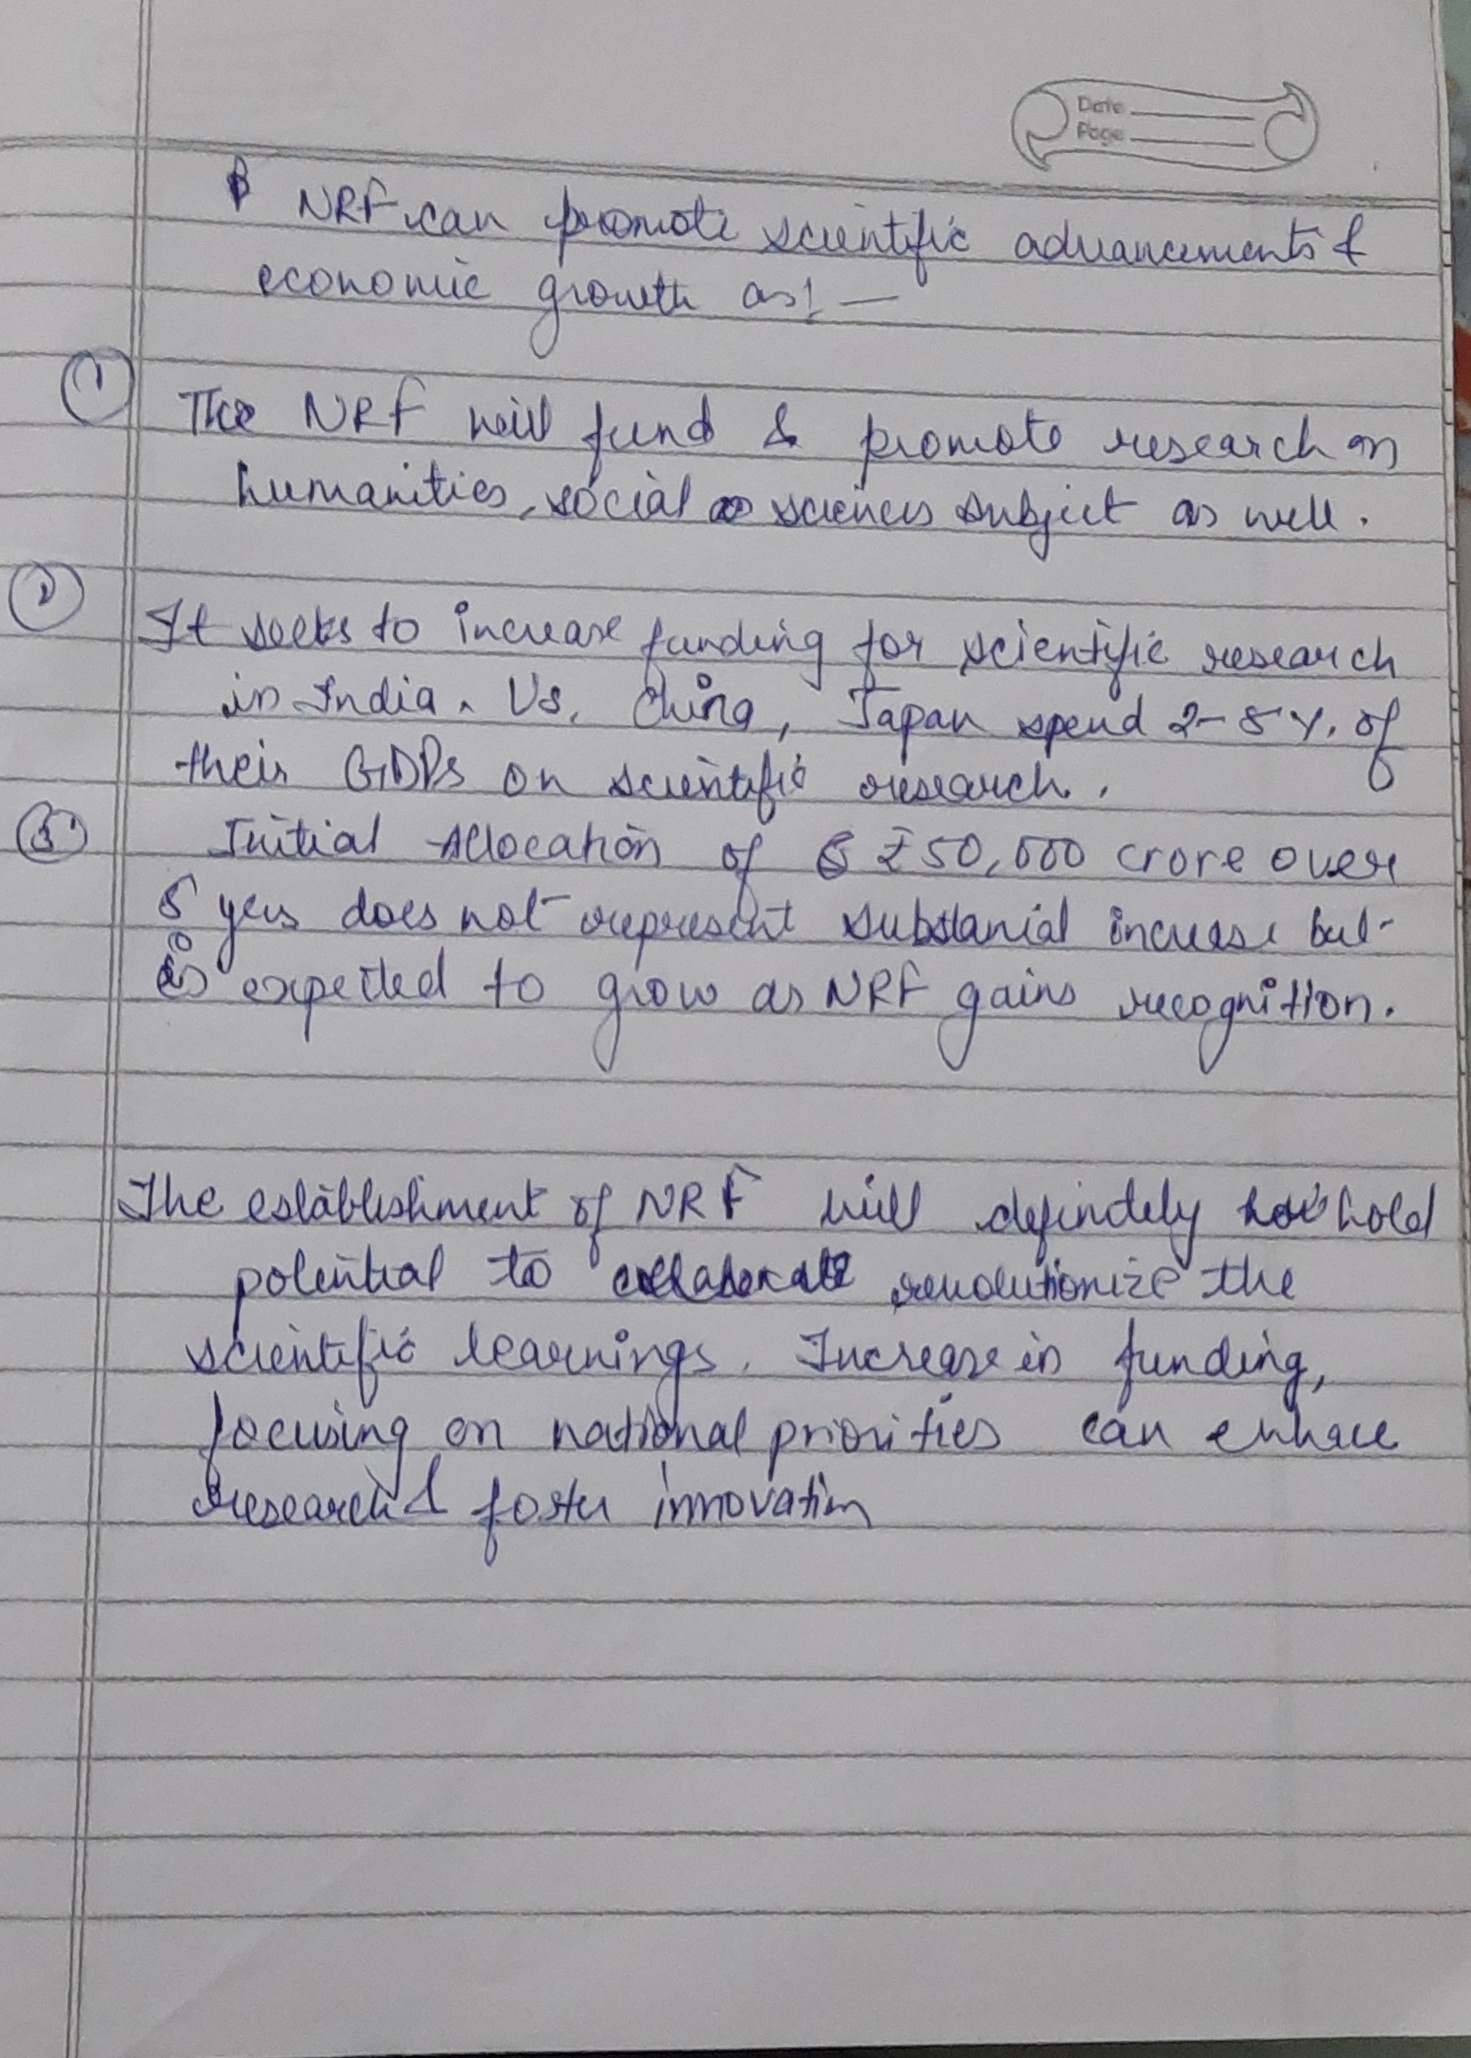 Date
Page
NRF can promote scientific advancements &
economic growth as! —
① The NRF will fund & promote research on
humanities, social sciences subject as well.
② It seeks to increase funding for scientific research
in India. Us, China, Japan spend 2-5%. of
their GDPs on scientific research.
③ Initial Allocation of ₹50,000 crore over
5 yers does not represent substanial increase but
is expected to grow as NRF gains recognition.
The establishment of NRF will defindely hold
potential to revolutionize the
scientific learnings. Increase in funding,
focusing on national priorities can enhace
research & foster innovation